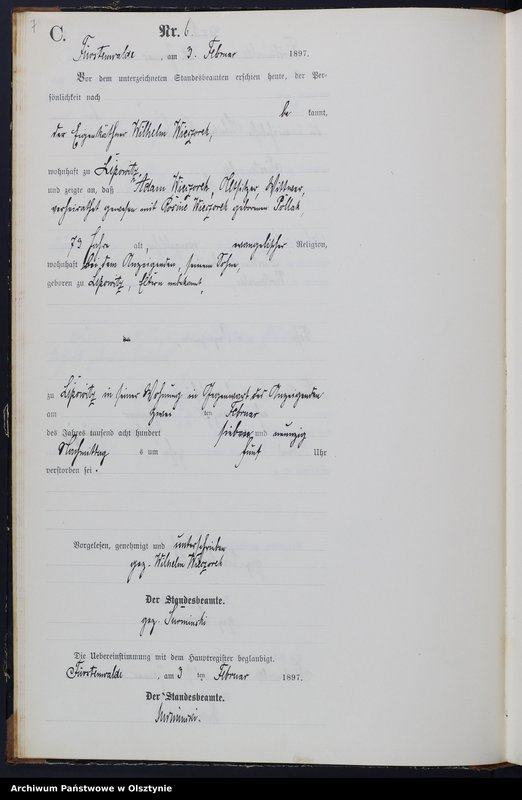 7
C.
Nr. 6.
Fürstenwalde, am 3. Februar 1897.
Vor dem unterzeichneten Standesbeamten erschien heute, der Per-
sönlichkeit nach
be kannt,
der Eigenkäthner Wilhelm Wieczorek,
wohnhaft zu Lipowitz
und zeigte an, daß Adam Wieczorek, Altsitzer, Wittwer,
verheirathet gewesen mit Rosine Wieczorek geborenen Pollak,
73 Jahre alt, evangelischer Religion,
wohnhaft bei dem Anzeigenden, seinem Sohne,
geboren zu Lipowitz, Eltern unbekannt,
zu Lipowitz in seiner Wohnung in Gegenwart des Anzeigenden
am zwei ten Februar
des Jahres tausend acht hundert sieben und neunzig
Nachmittag s um fünf Uhr
verstorben sei.
Vorgelesen, genehmigt und unterschrieben
gez. Wilhelm Wieczorek
Der Standesbeamte.
gez.
Die Uebereinstimmung mit dem Hauptregister beglaubigt.
Fürstenwalde, am 3 ten Februar 1897.
Der Standesbeamte.
Archiwum Państwowe w Olsztynie